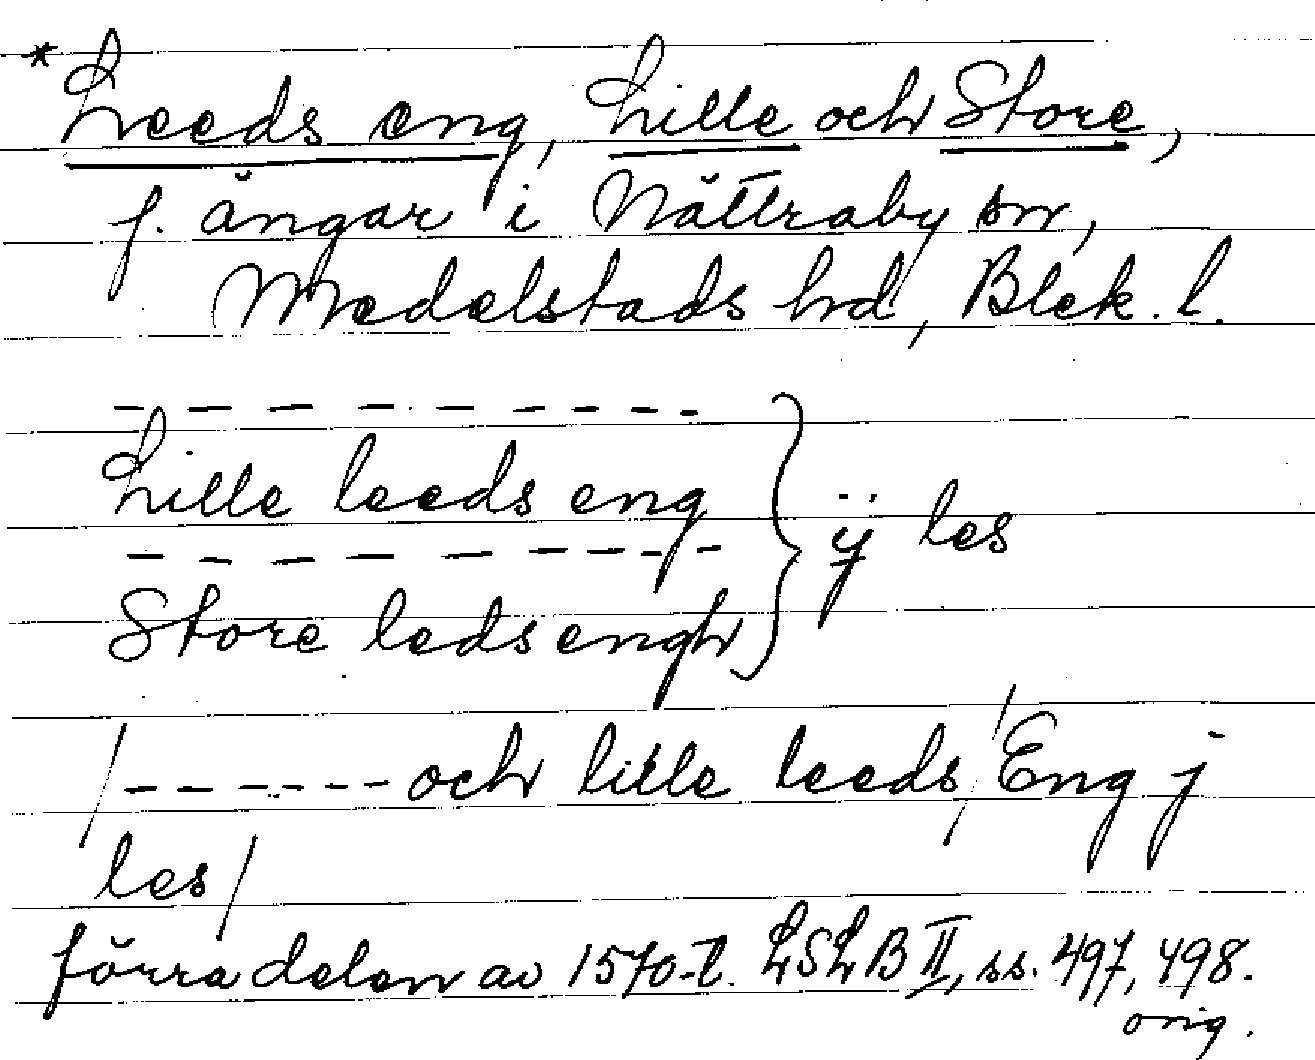 * Leeds eng, Lille och Store,
f. ängar i Nättraby sn,
Medelstads hd, Blek. l.
- - - - - - - -
Lille leeds eng } ij les
- - - - - - - -
Store leds engh
/- - - - - - - och lille leeds/ /Eng j
les/
förra delen av 1570-t. LSLB II, ss. 497, 498.
orig.